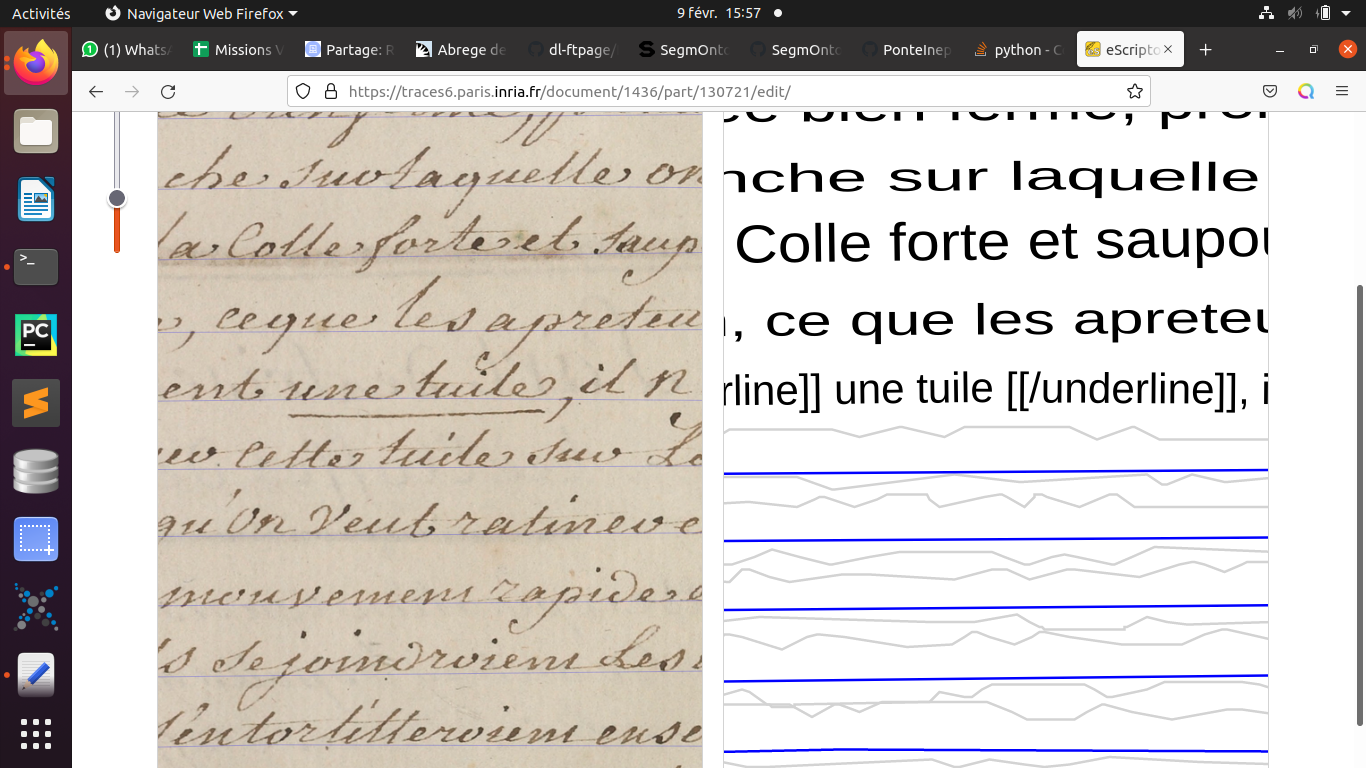 Activités
Navigateur Web Firefox
9 févr. 15:57
(1) WhatsA
Missions V
Partage: R
Abrege de
dl-ftpage/
SegmOnto
SegmOnto
PonteInep
python - C
eScripto
https://traces6.paris.inria.fr/document/1436/part/130721/edit/
che sur laquelle on
la Colle forte et saup
, ce que les apreteu
ent une tuile, il n
cette tuile sur La
qu'on veut ratiner e
mouvement rapide
ils se joindroient Les
s'entortilleroient ense
ce bien ferme, pre
nche sur laquelle
Colle forte et saupou
n, ce que les apreteu
rline]] une tuile [[/underline]], i
>_
PC